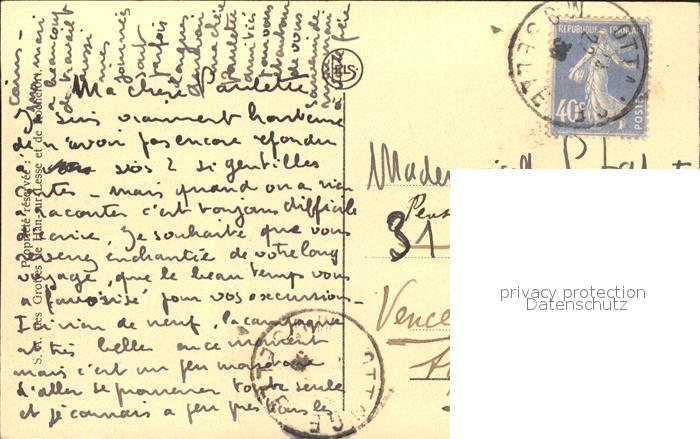 Ma chère Paulette
Suis vraiment honteuse
de n'avoir pas encore répondu
à vos 2 si gentilles
cartes – mais quand on a rien
à raconter c'est toujours difficile
d'écrire, je souhaite que vous
revenez enchantée de votre long
voyage, que le beau temps vous
a favorisé pour vos excursions –
Ici rien de neuf, la campagne
est très belle en ce moment
mais c'est un peu monotone
d'aller se promener toute seule
et je connais à peu près tous les
coins –
mari
a beaucoup
de travail
aussi
mes
journées
sont
parfois
longues
ma chère
Paulette
amitiés
pour vous
de vous
Propriété réservée :
S. A. des Grottes de Han-sur-Lesse et de Rochefort
ELS
REPUBLIQUE FRANÇAISE
40c
POSTES
Mademoiselle
31
Vence
privacy protection
Datenschutz